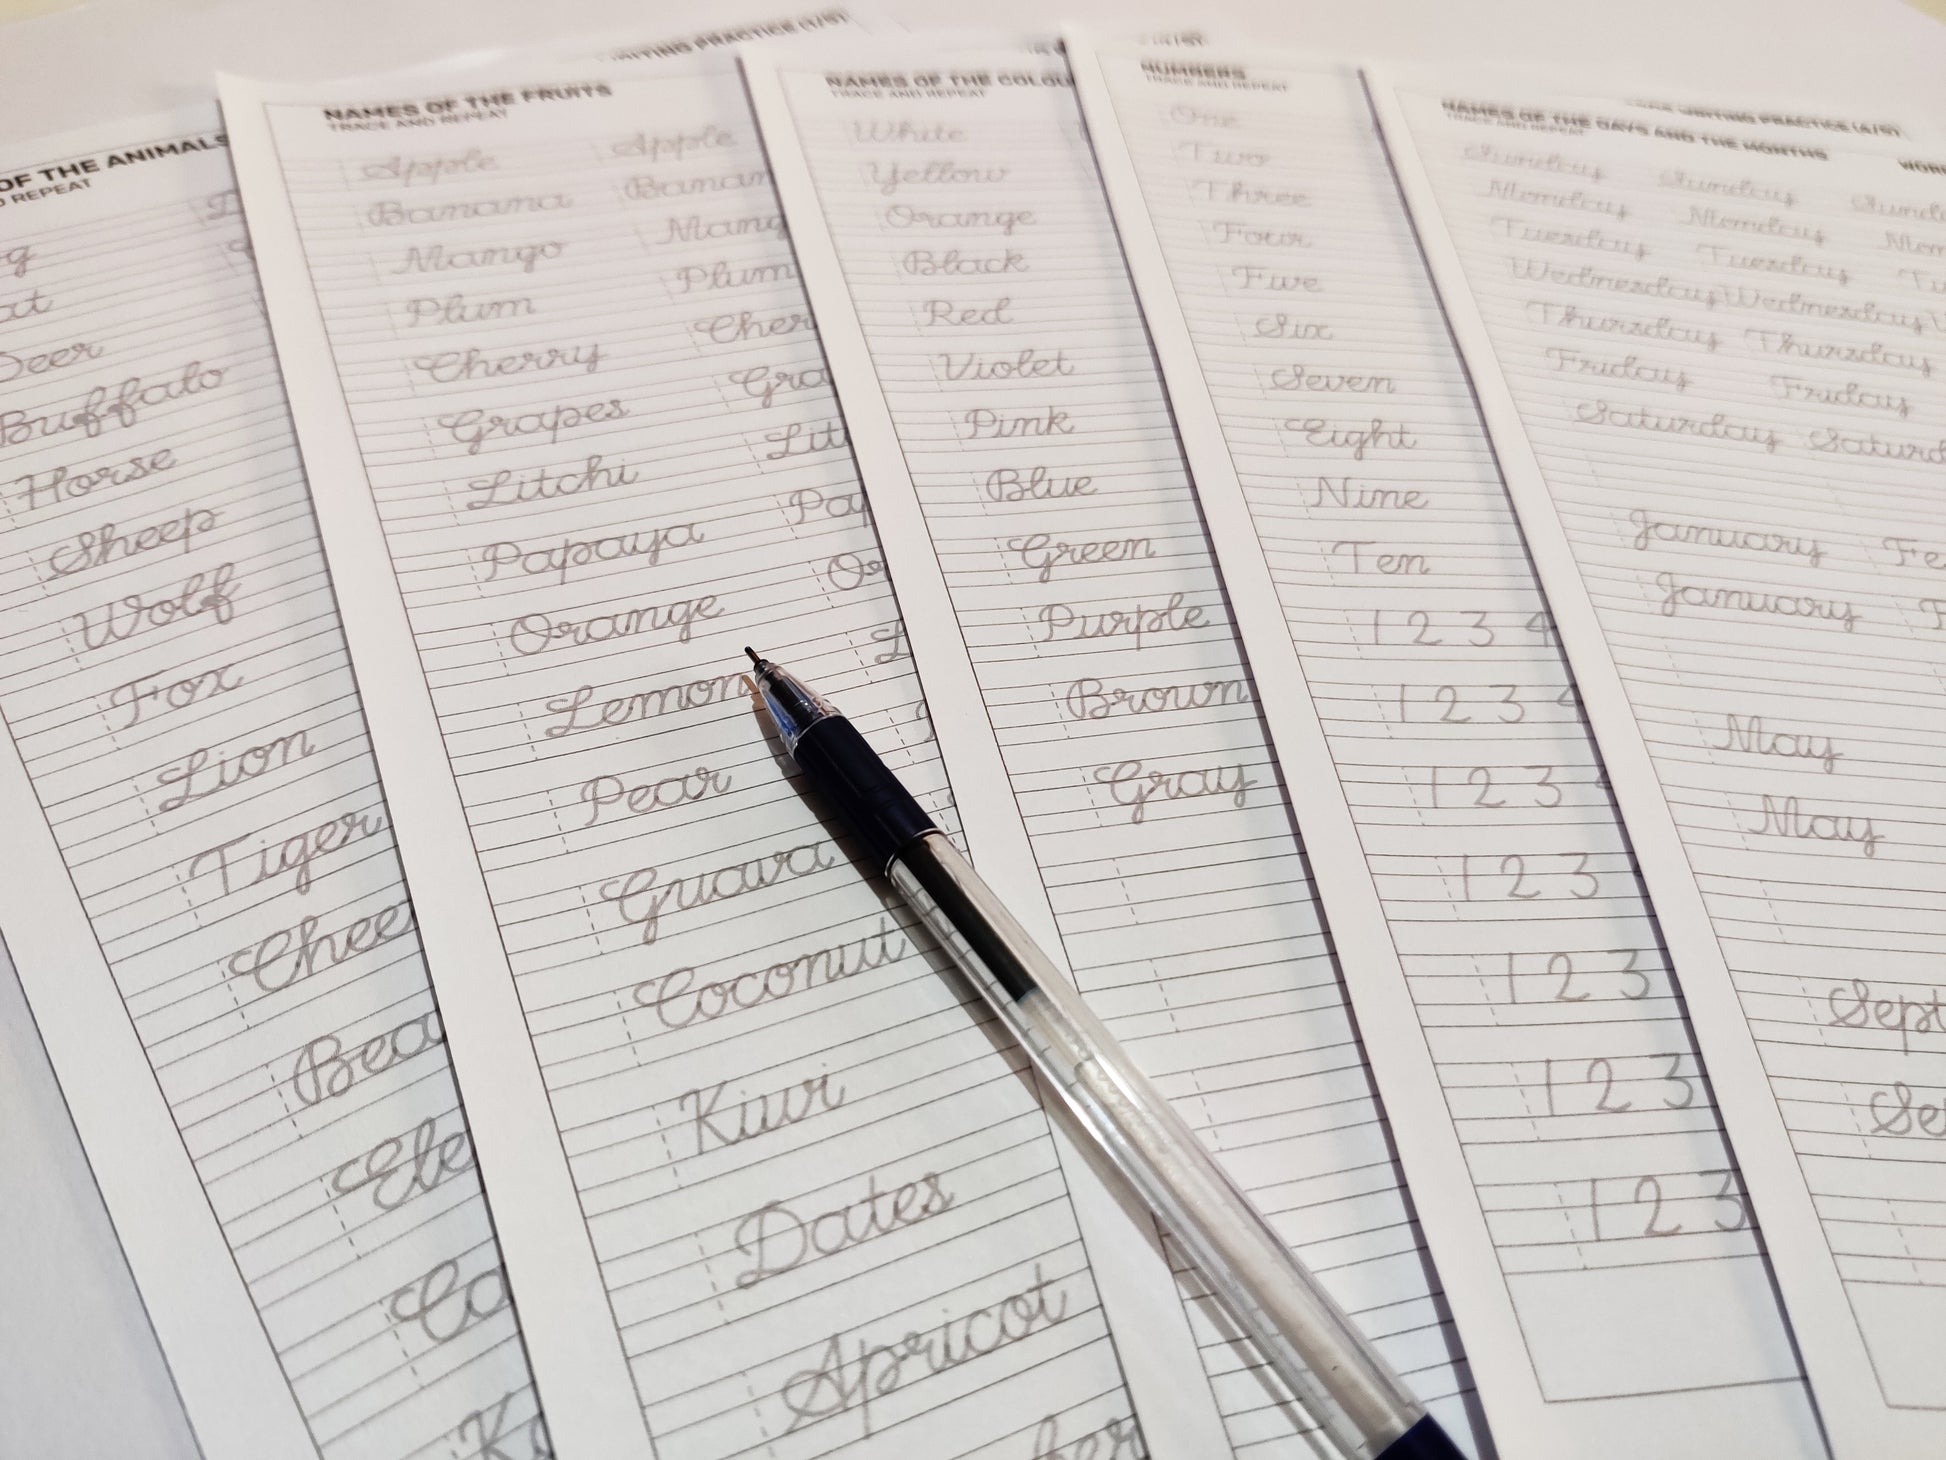 OF THE ANIMALS
REPEAT
Deer
Buffalo
Horse
Sheep
Wolf
Fox
Lion
Tiger
Chee
Bea
Ele
Co
WRITING PRACTICE (1/5)
NAMES OF THE FRUITS
TRACE AND REPEAT
Apple Apple
Banana Banan
Mango Mang
Plum Plum
Cherry Cher
Grapes Gra
Litchi Lit
Papaya Pay
Orange Or
Lemon L
Pear
Guava
Coconut
Kiwi
Dates
Apricot
ber
NAMES OF THE COLOU
TRACE AND REPEAT
White
Yellow
Orange
Black
Red
Violet
Pink
Blue
Green
Purple
Brown
Gray
NUMBERS
TRACE AND REPEAT
One
Two
Three
Four
Five
Six
Seven
Eight
Nine
Ten
1 2 3 4
1 2 3 4
1 2 3
1 2 3
1 2 3
1 2 3
1 2 3
WRITING PRACTICE (4/5)
NAMES OF THE DAYS AND THE MONTHS
TRACE AND REPEAT
Sunday Sunday Sund
Monday Monday Mon
Tuesday Tuesday Tu
Wednesday Wednesday
Thursday Thursday
Friday Friday
Saturday Saturd
January Fe
January F
May
May
Sept
Se